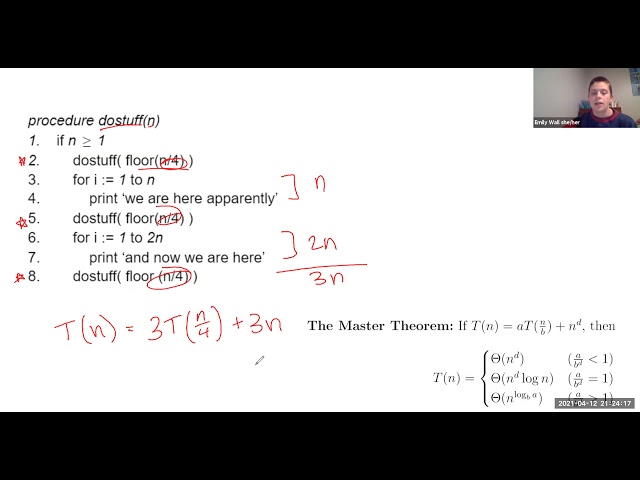 Emily Wall she/her
procedure dostuff(n)
1. if n ≥ 1
2. dostuff( floor(n/4) )
3. for i := 1 to n
4. print ‘we are here apparently’
] n
5. dostuff( floor(n/4) )
6. for i := 1 to 2n
7. print ‘and now we are here’
] 2n
3n
8. dostuff( floor (n/4) )
T(n) = 3T(n/4) + 3n
The Master Theorem: If T(n) = aT(n/b) + n^d, then
T(n) = { Θ(n^d) (a/b^d < 1)
Θ(n^d log n) (a/b^d = 1)
Θ(n^{log_b a}) (a/b^d > 1)
2021-04-12 21:24:17